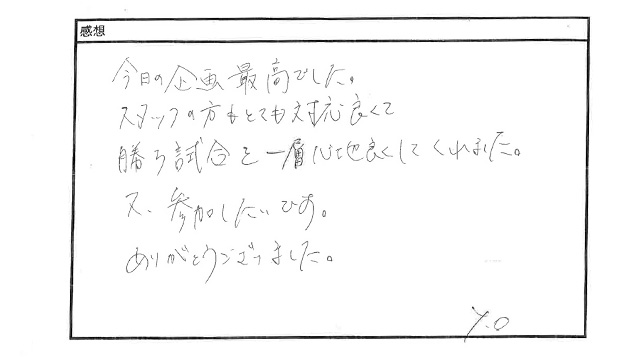 感想
今日の企画最高でした。
スタッフの方もとても対応良くて
勝ち試合を一層心地良くしてくれました。
又、参加したいです。
ありがとうございました。
Y.O